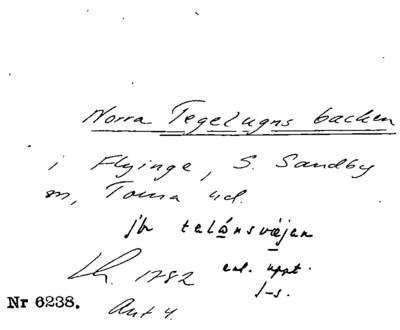 Norra Tegelugnsbacken
i Flyinge, S. Sandby
sn, Torna hd.
jfr telånsväjen
Lh. 1782 enl. uppt.
J-s.
Nr 6238. Ant 4.